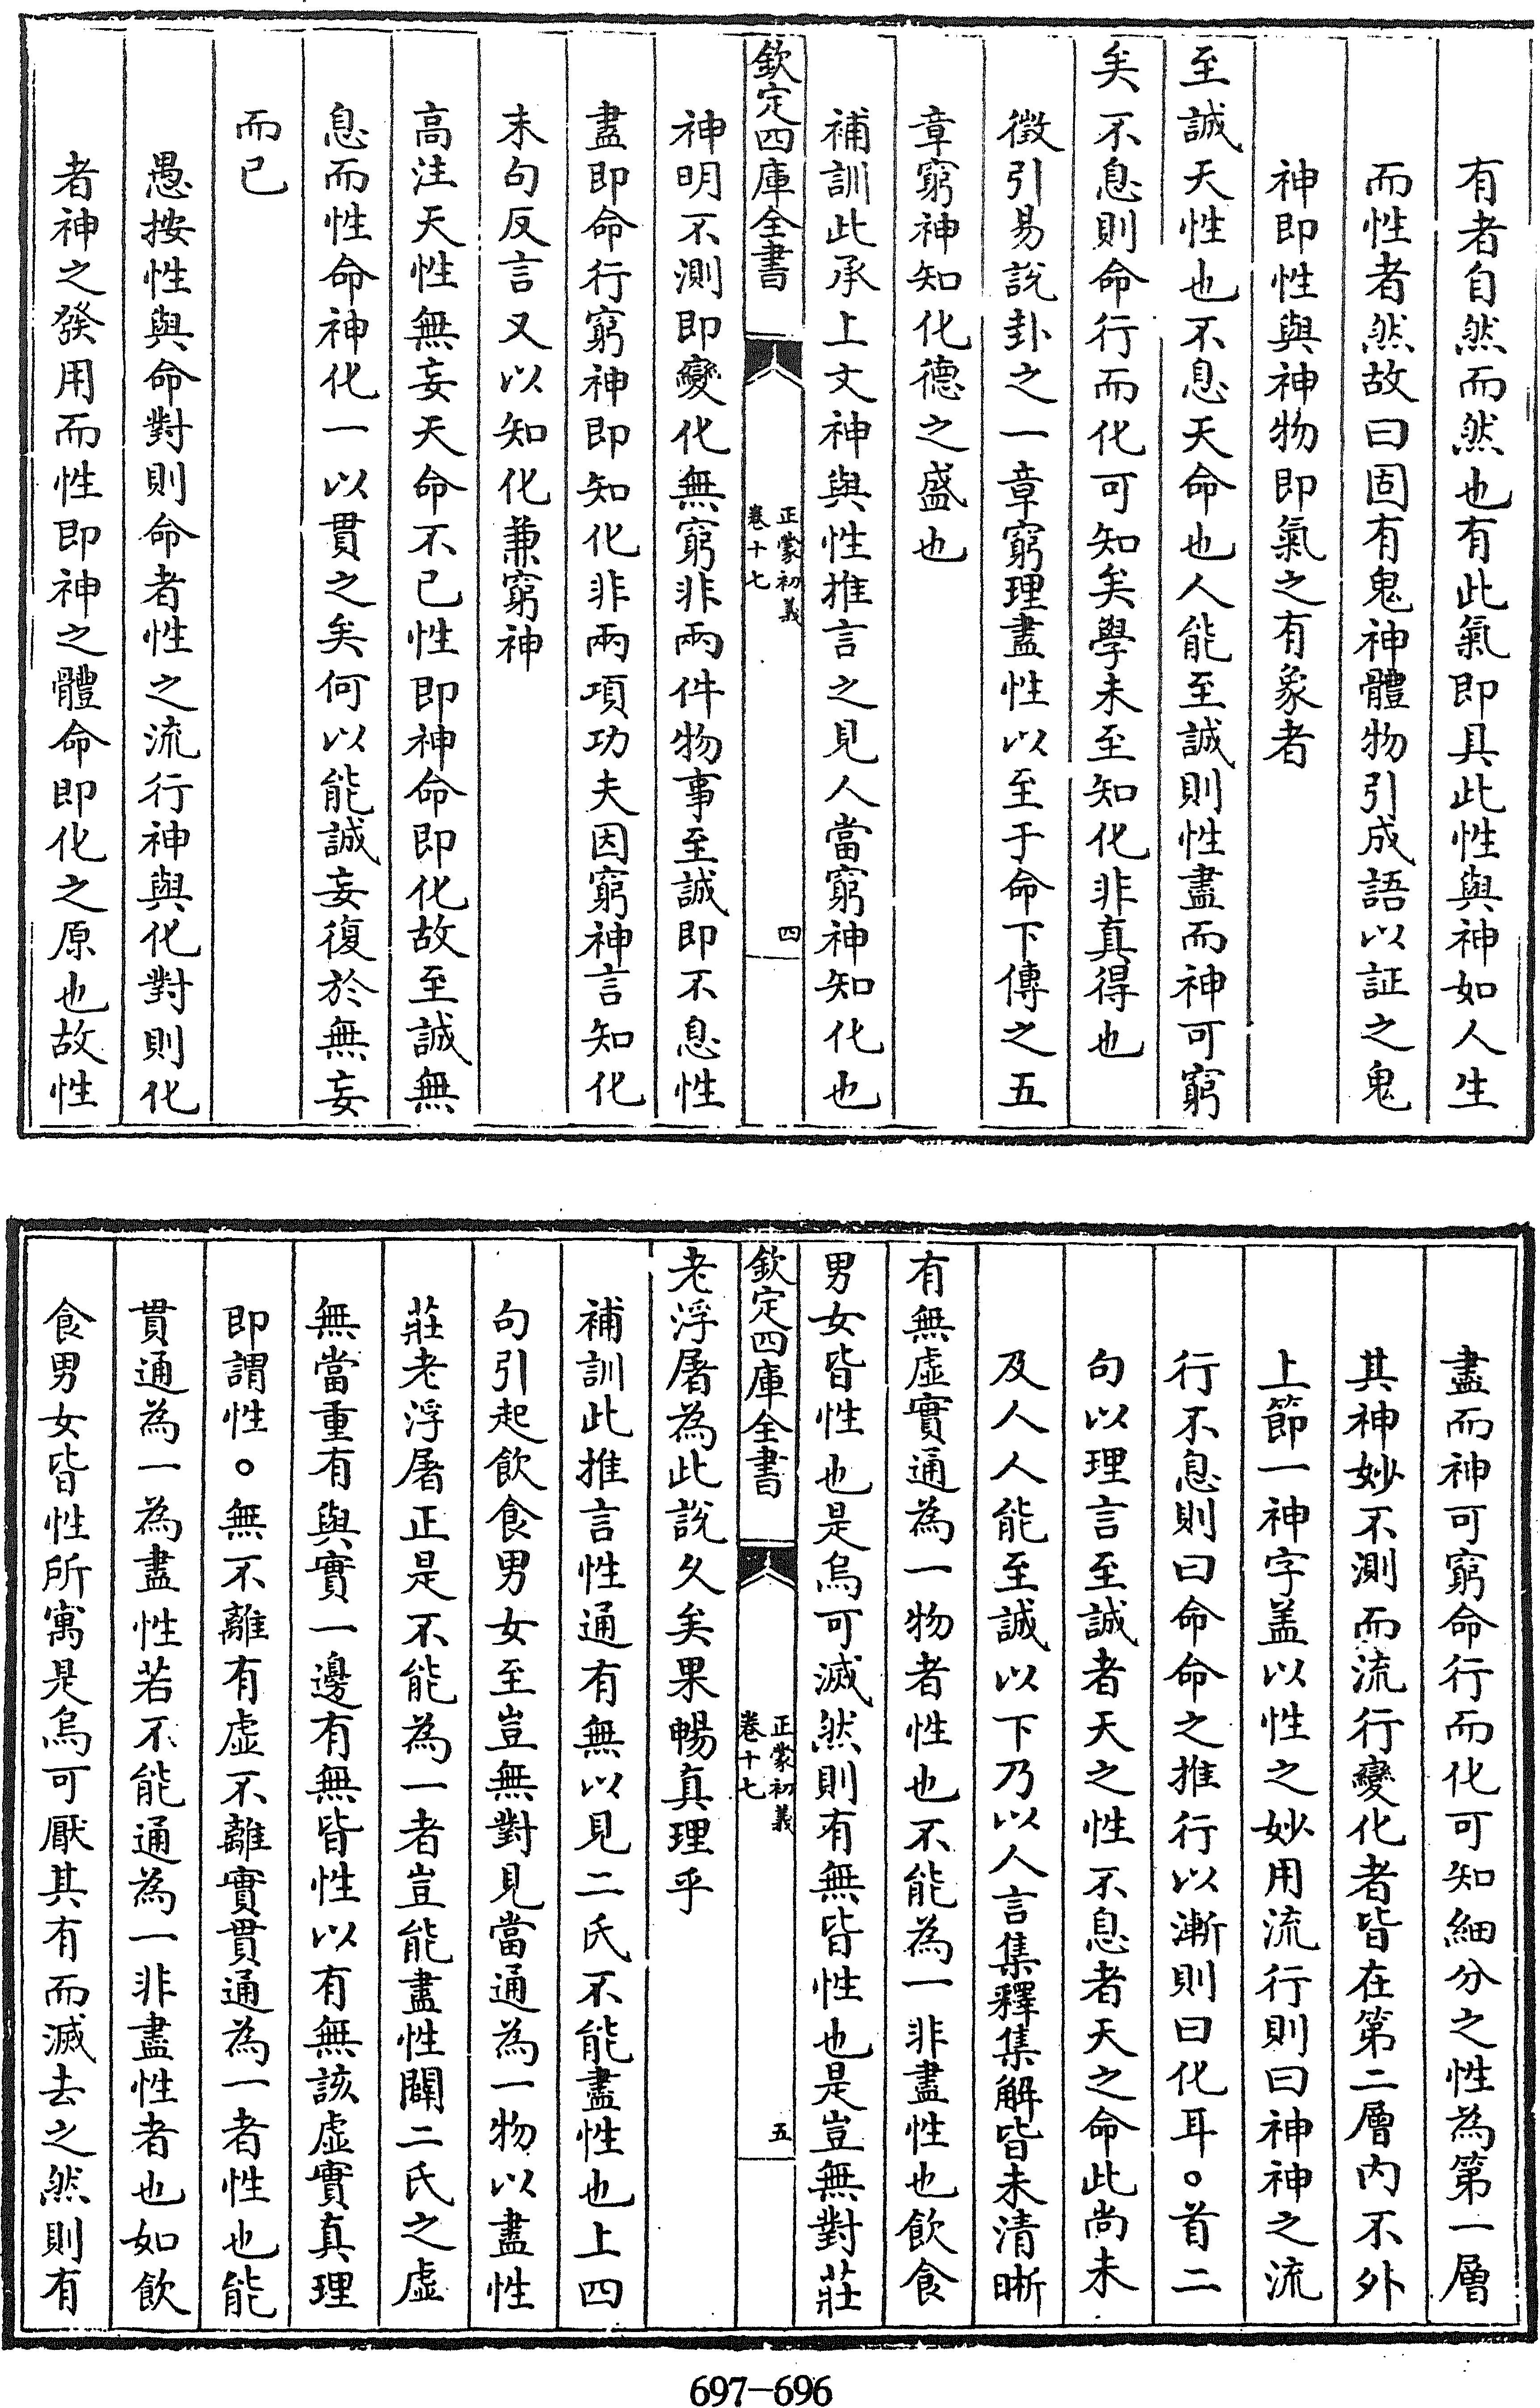 有者自然而然也有此氣即具此性與神如人生
而性者然故曰固有鬼神體物引成語以証之鬼
神即性與神物即氣之有象者
至誠天性也不息天命也人能至誠則性盡而神可窮
矣不息則命行而化可知矣學未至知化非真得也
徵引易說卦之一章窮理盡性以至于命下傳之五
章窮神知化德之盛也
補訓此承上文神與性推言之見人當窮神知化也
欽定四庫全書
正蒙初義
卷十七
四
神明不測即變化無窮非兩件物事至誠即不息性
盡即命行窮神即知化非兩項功夫因窮神言知化
末句反言又以知化兼窮神
高注天性無妄天命不已性即神命即化故至誠無
息而性命神化一以貫之矣何以能誠妄復於無妄
而已
愚按性與命對則命者性之流行神與化對則化
者神之發用而性即神之體命即化之原也故性
盡而神可窮命行而化可知細分之性為第一層
其神妙不測而流行變化者皆在第二層內不外
上節一神字盖以性之妙用流行則曰神神之流
行不息則曰命命之推行以漸則曰化耳。首二
句以理言至誠者天之性不息者天之命此尚未
及人人能至誠以下乃以人言集釋集解皆未清晰
有無虛實通為一物者性也不能為一非盡性也飲食
男女皆性也是烏可滅然則有無皆性也是豈無對莊
欽定四庫全書
正蒙初義
卷十七
五
老浮屠為此說久矣果暢真理乎
補訓此推言性通有無以見二氏不能盡性也上四
句引起飲食男女至豈無對見當通為一物以盡性
莊老浮屠正是不能為一者豈能盡性闢二氏之虛
無當重有與實一邊有無皆性以有無該虛實真理
即謂性。無不離有虛不離實貫通為一者性也能
貫通為一為盡性若不能通為一非盡性者也如飲
食男女皆性所寓是烏可厭其有而滅去之然則有
697-696